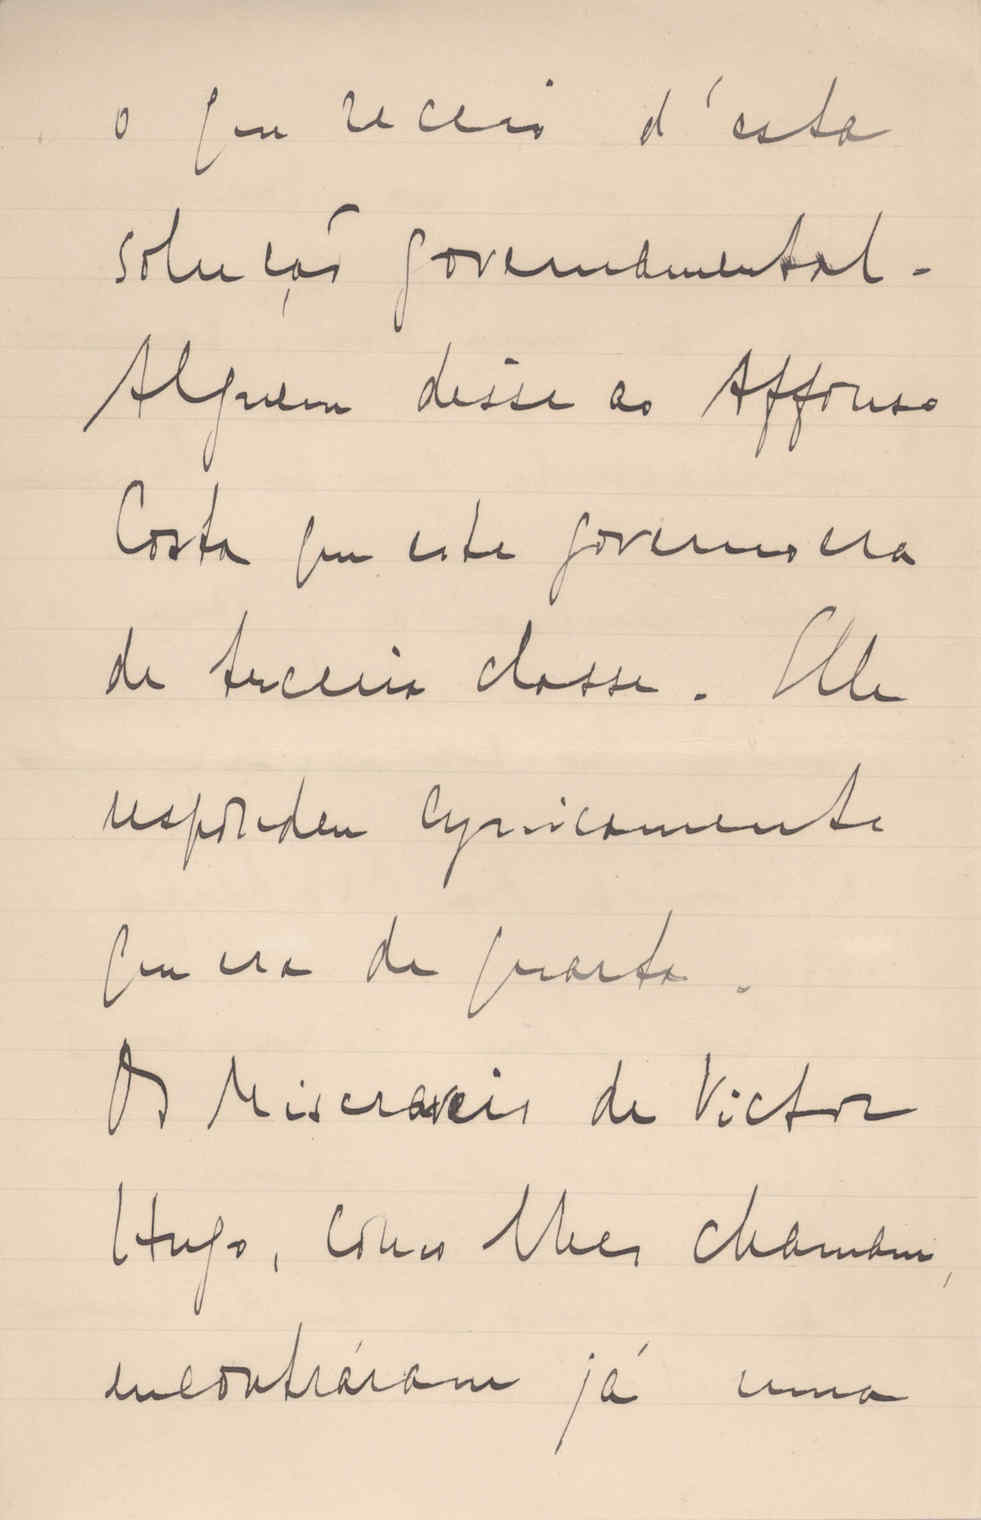 o que receio d'esta
solução governamental.
Alguem disse ao Affonso
Costa que este governo era
de terceira classe. Elle
respondeu cynicamente
que era de quarta.
Os Miseraveis de Victor
Hugo, como lhes chamam,
encontráram já uma